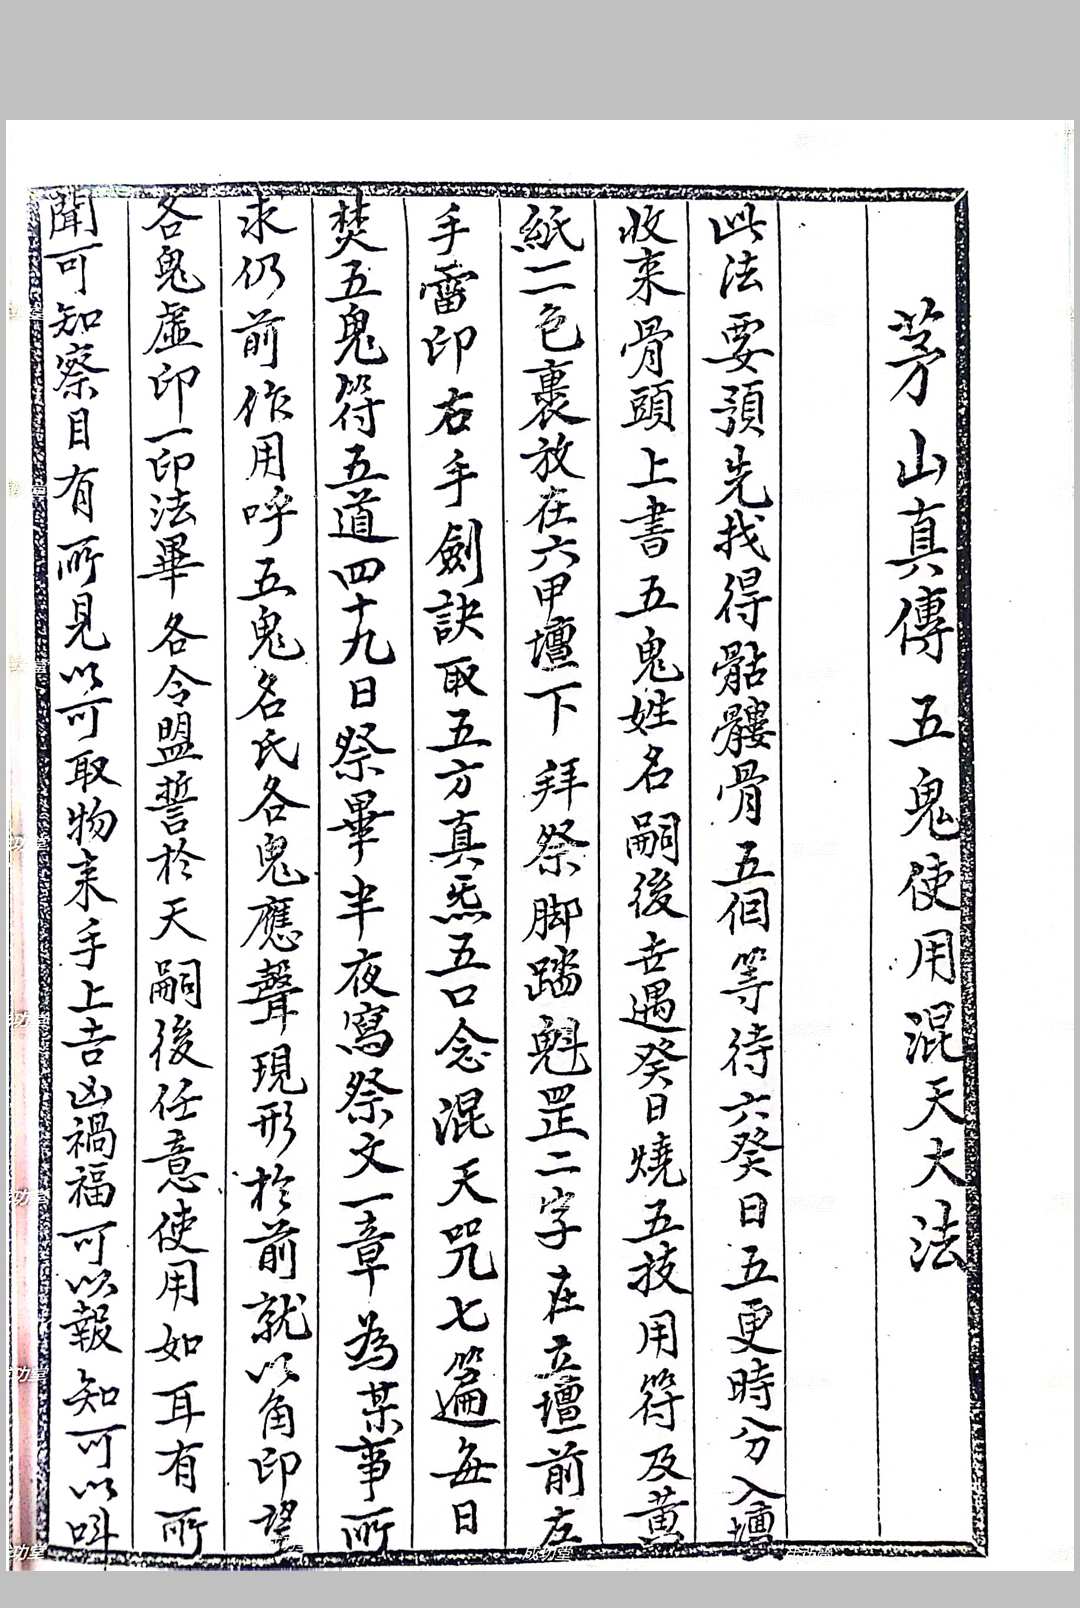 茅山真傳五鬼使用混天大法
此法要預先找得骷髏骨五個等待六癸日五更時分入壇
收來骨頭上書五鬼姓名嗣後去遇癸日燒五技用符及黃
紙二色裹放在六甲壇下拜祭脚踏魁罡二字在立壇前左
手雷印右手劍訣取五方真炁五口念混天咒七篇每日
焚五鬼符五道四十九日祭畢半夜寫祭文一章為某事所
求仍前作用呼五鬼名氏各鬼應聲現形於前就以角印望
各鬼虛印一印法畢各令盟誓於天嗣後任意使用如耳有所
聞可知察目有所見以可取物来手上吉凶禍福可以報知可以呌
成功堂